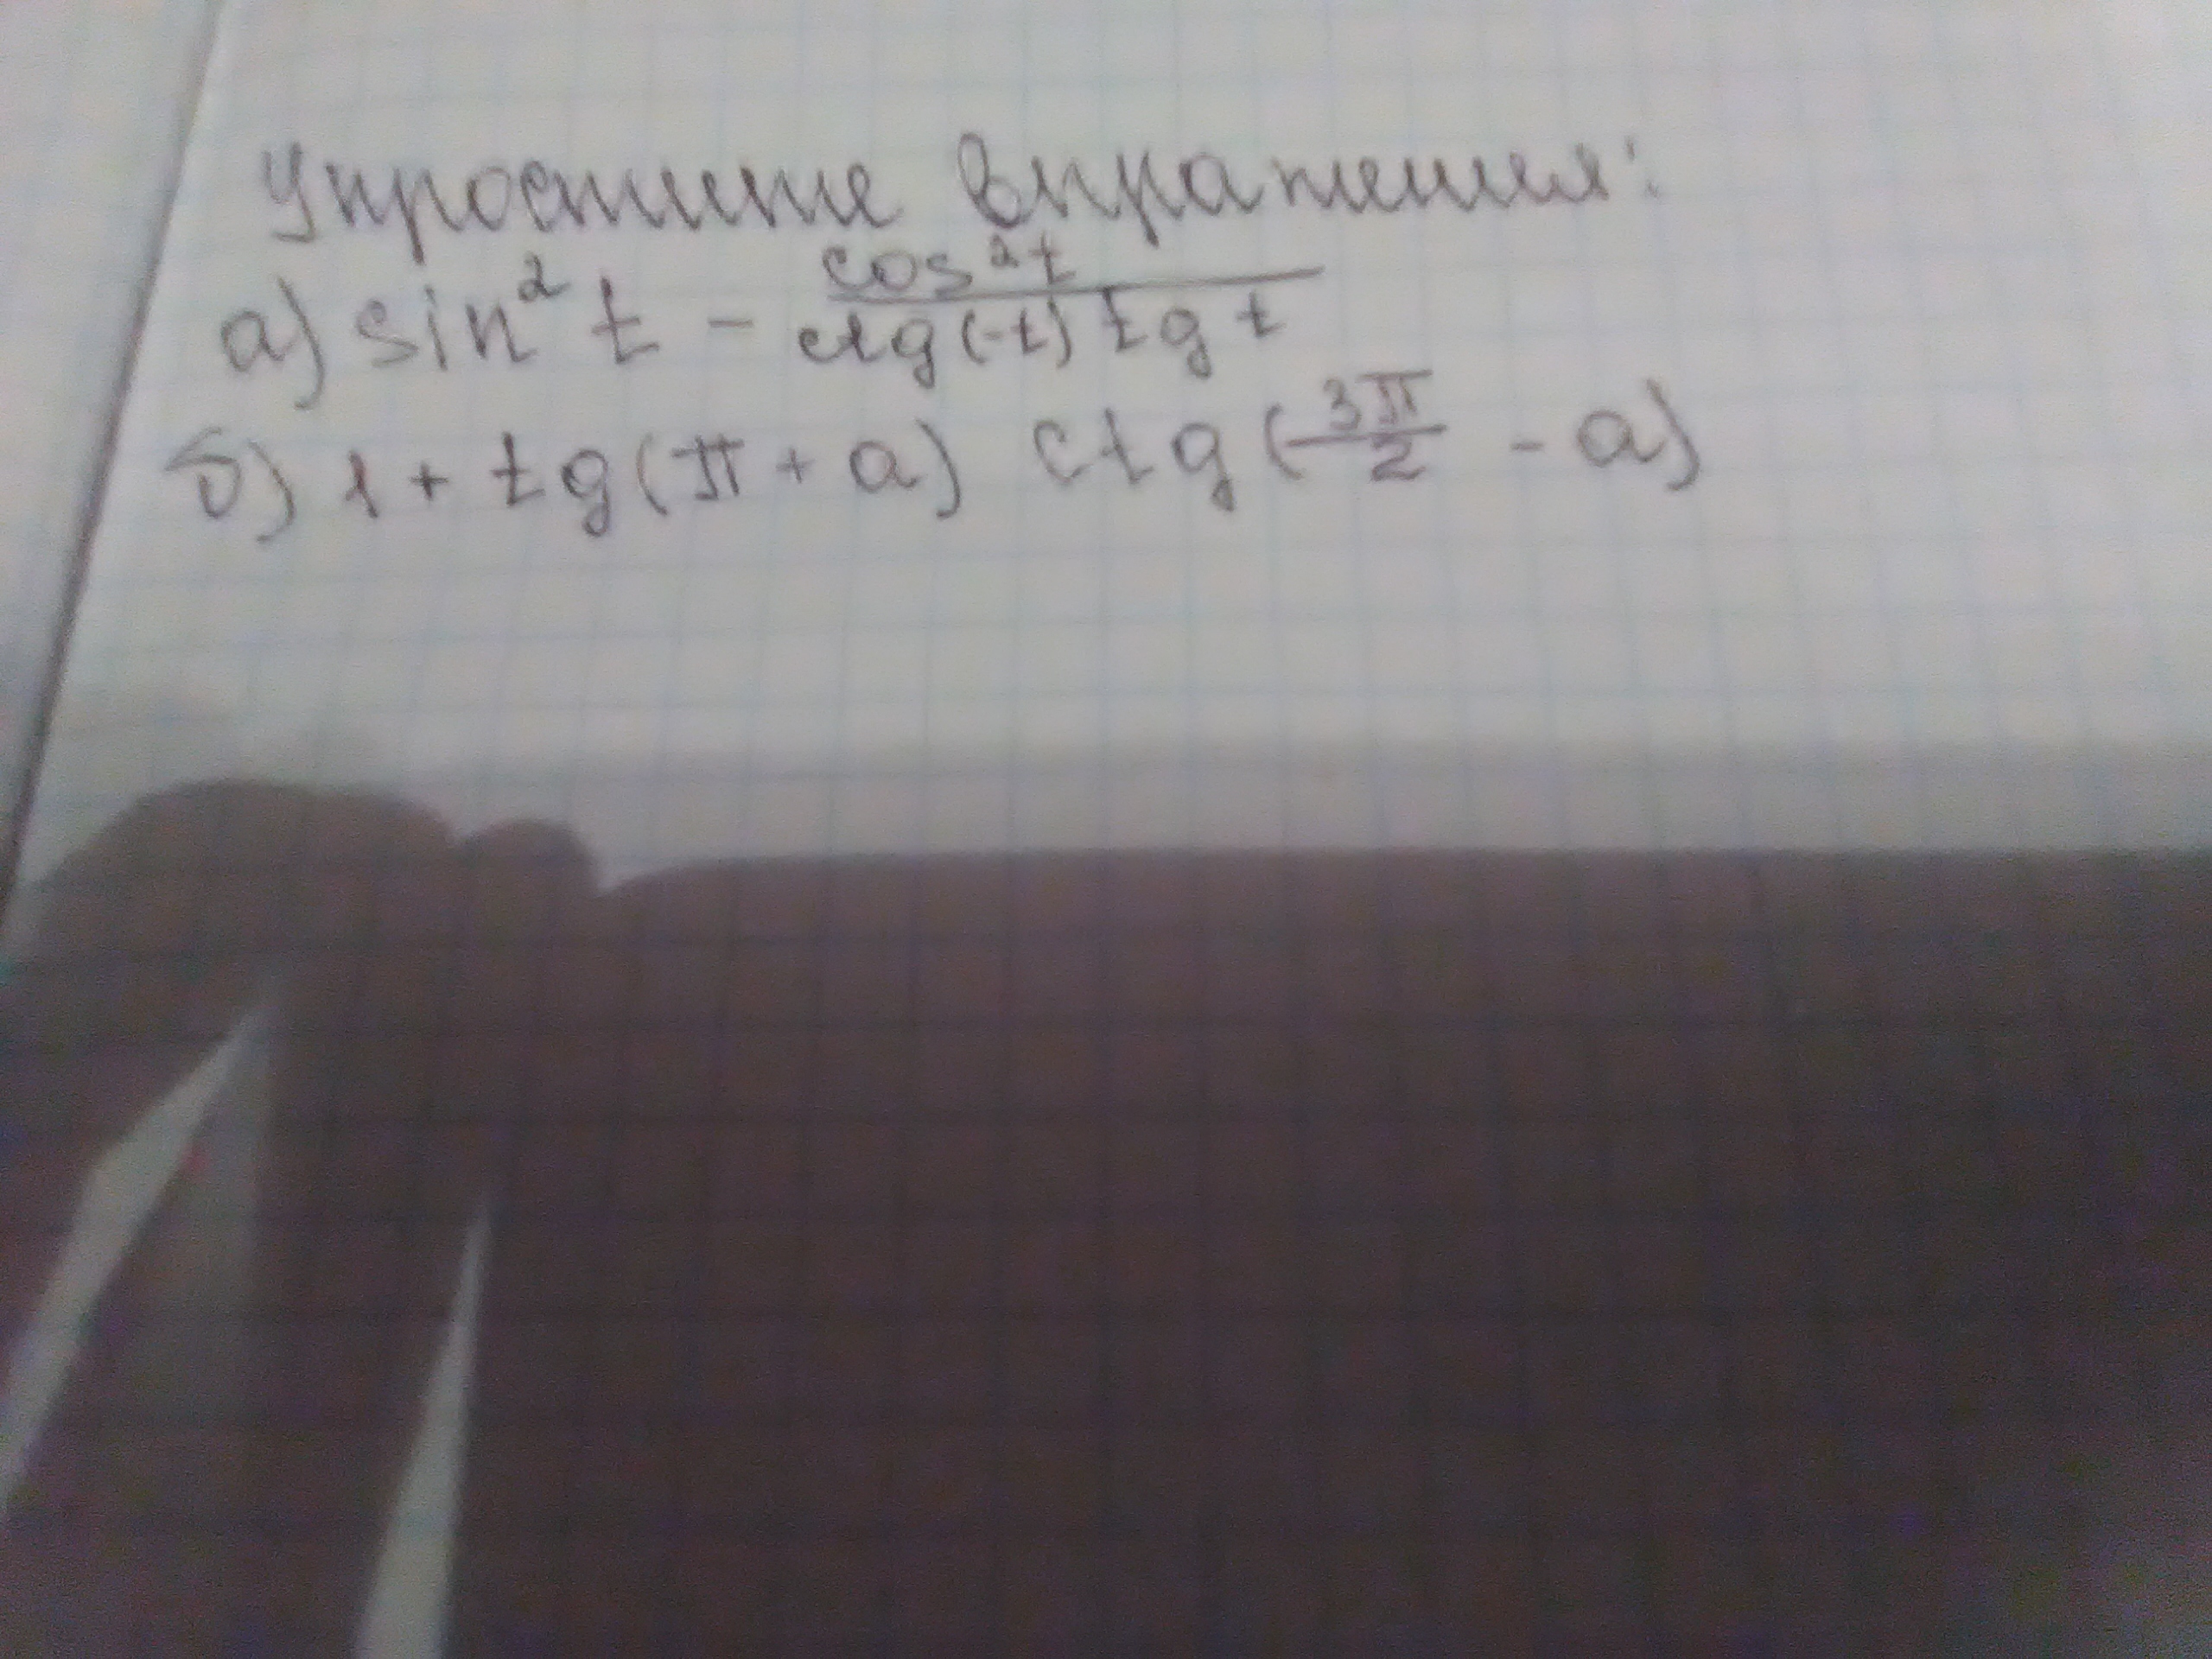 Упростите выражения:
а) sin² t - cos² t / ctg(-t) tg t
б) 1 + tg(π + a) ctg(3π/2 - a)